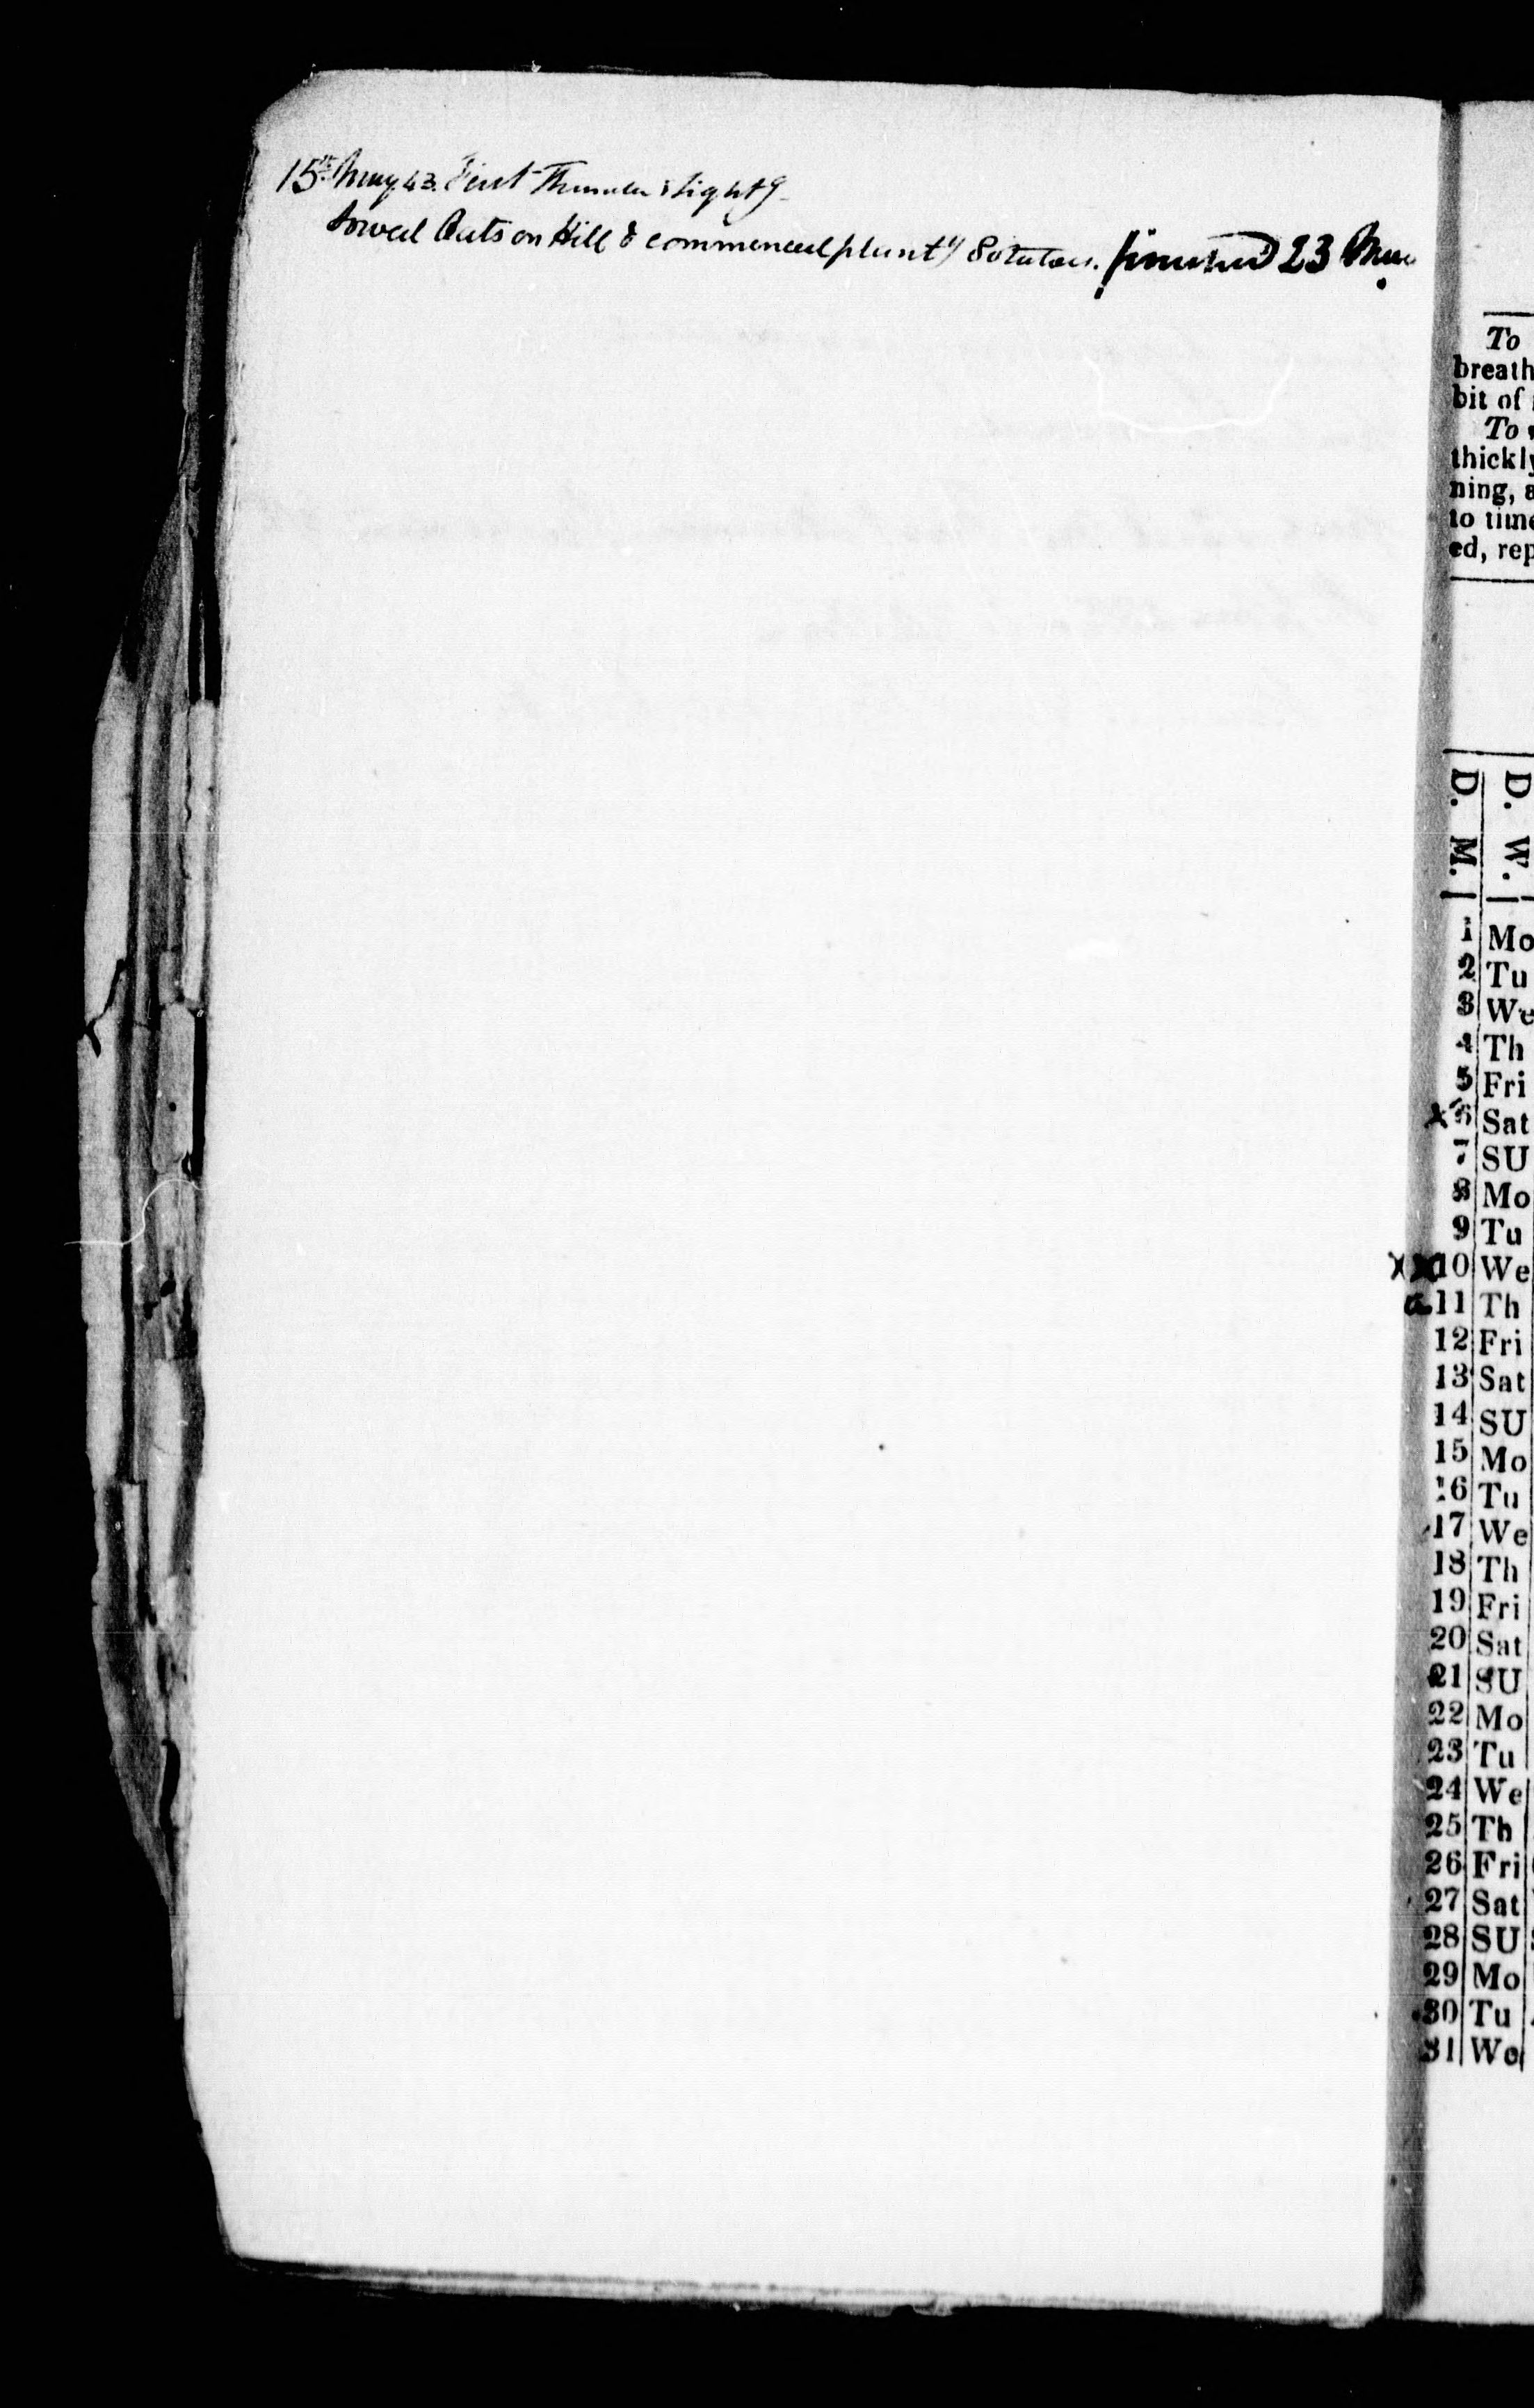 15th May 43. First Thunder & Light g
Sowed Oats on Hill & commenced plant g Potatoes. finished 23 May
To
breath
bit of
To
thickly
ning, a
to time
ed, rep
D. M. D. W.
1 Mo
2 Tu
3 We
4 Th
5 Fri
x 6 Sat
7 SU
8 Mo
9 Tu
x x 10 We
a 11 Th
12 Fri
13 Sat
14 SU
15 Mo
16 Tu
17 We
18 Th
19 Fri
20 Sat
21 SU
22 Mo
23 Tu
24 We
25 Th
26 Fri
27 Sat
28 SU
29 Mo
30 Tu
31 We